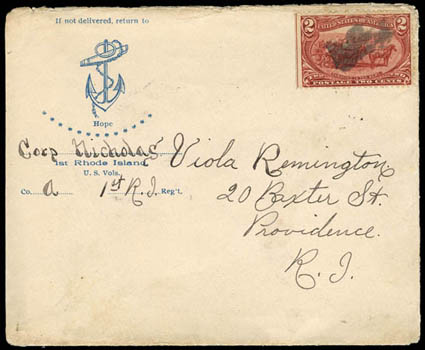 If not delivered, return to
Hope
Corp Nicholas
1st Rhode Island
U. S. Vols.
Co. a 1st R.I. Reg't.
2 UNITED STATES OF AMERICA 2
POSTAGE TWO CENTS
Viola Remington
20 Baxter St.
Providence.
R. I.